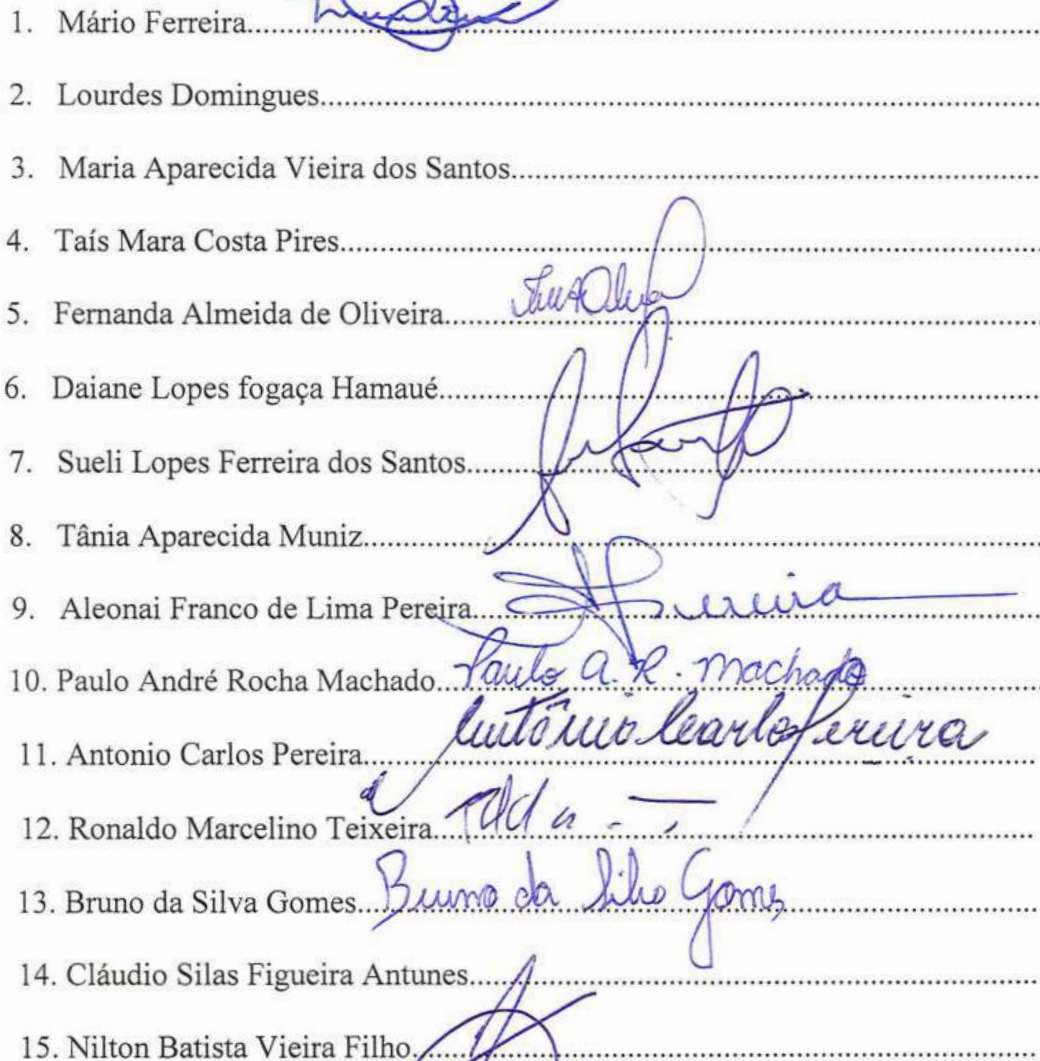 1. Mário Ferreira.....
2. Lourdes Domingues.....
3. Maria Aparecida Vieira dos Santos.....
4. Taís Mara Costa Pires.....
5. Fernanda Almeida de Oliveira.....
6. Daiane Lopes fogaça Hamaué.....
7. Sueli Lopes Ferreira dos Santos.....
8. Tânia Aparecida Muniz.....
9. Aleonai Franco de Lima Pereira..... Pereira
10. Paulo André Rocha Machado..... Paulo A. R. Machado
11. Antonio Carlos Pereira..... Antônio Carlos Pereira
12. Ronaldo Marcelino Teixeira.....
13. Bruno da Silva Gomes..... Bruno da Silva Gomes
14. Cláudio Silas Figueira Antunes.....
15. Nilton Batista Vieira Filho.....